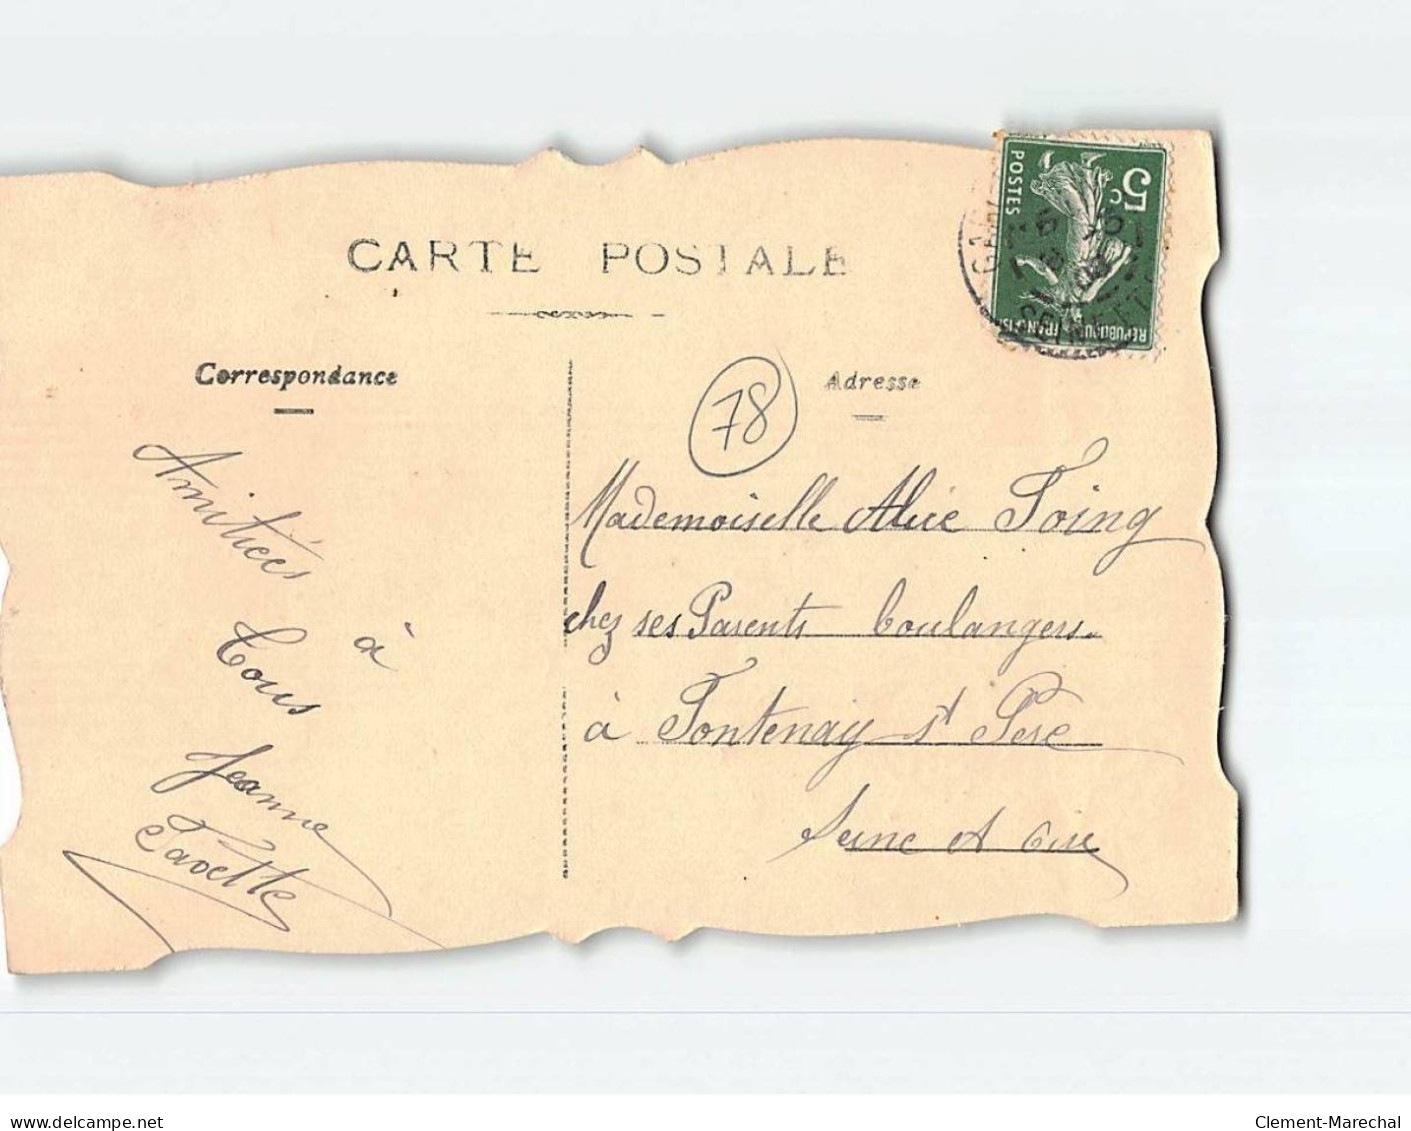 CARTE POSTALE
Correspondance
Adresse
5c
POSTES
REPUBLIQUE FRANÇAISE
78
Amitiés
à
Tous
Jeanne
Mademoiselle Alice Toing
chez ses Parents boulangers
à Fontenay st Pere
Seine et Oise
www.delcampe.net
Clement-Marechal